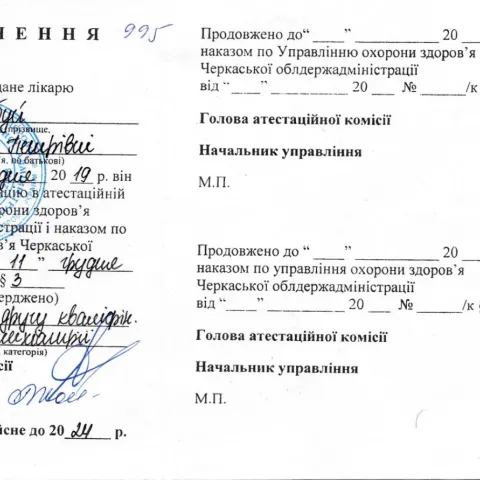 НЕННЯ 995
дане лікарю
прізвище,
Петрівні
я, по батькові)
дня 2019 р. він
ацію в атестаційній
орони здоров'я
страції і наказом по
в'я Черкаської
11 " грудня
§ 3
ерджено)
другу кваліфік.
категорія)
сії
йсне до 2024 р.
Продовжено до“ ____ ” ____ 20
наказом по Управлінню охорони здоров'я
Черкаської облдержадміністрації
від “____”____ 20 __ № ____/к
Голова атестаційної комісії
Начальник управління
М.П.
Продовжено до “ ____ ” ____ 20
наказом по управління охорони здоров'я
Черкаської облдержадміністрації
від “____”____ 20 __ № ____/к
Голова атестаційної комісії
Начальник управління
М.П.